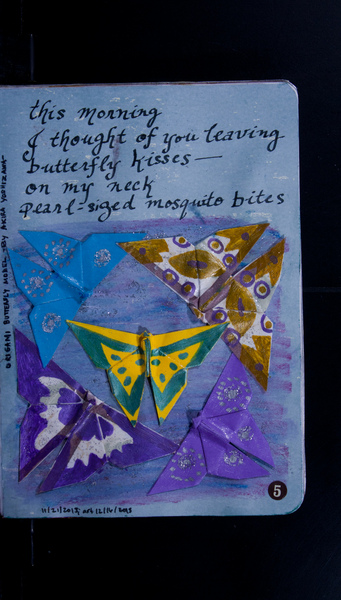 this morning
I thought of you leaving
butterfly kisses—
on my neck
pearl-sized mosquito bites
ORIGAMI BUTTERFLY MODEL BY AKIRA YOSHIZAWA
5
11/21/2013, art 12/10/2013